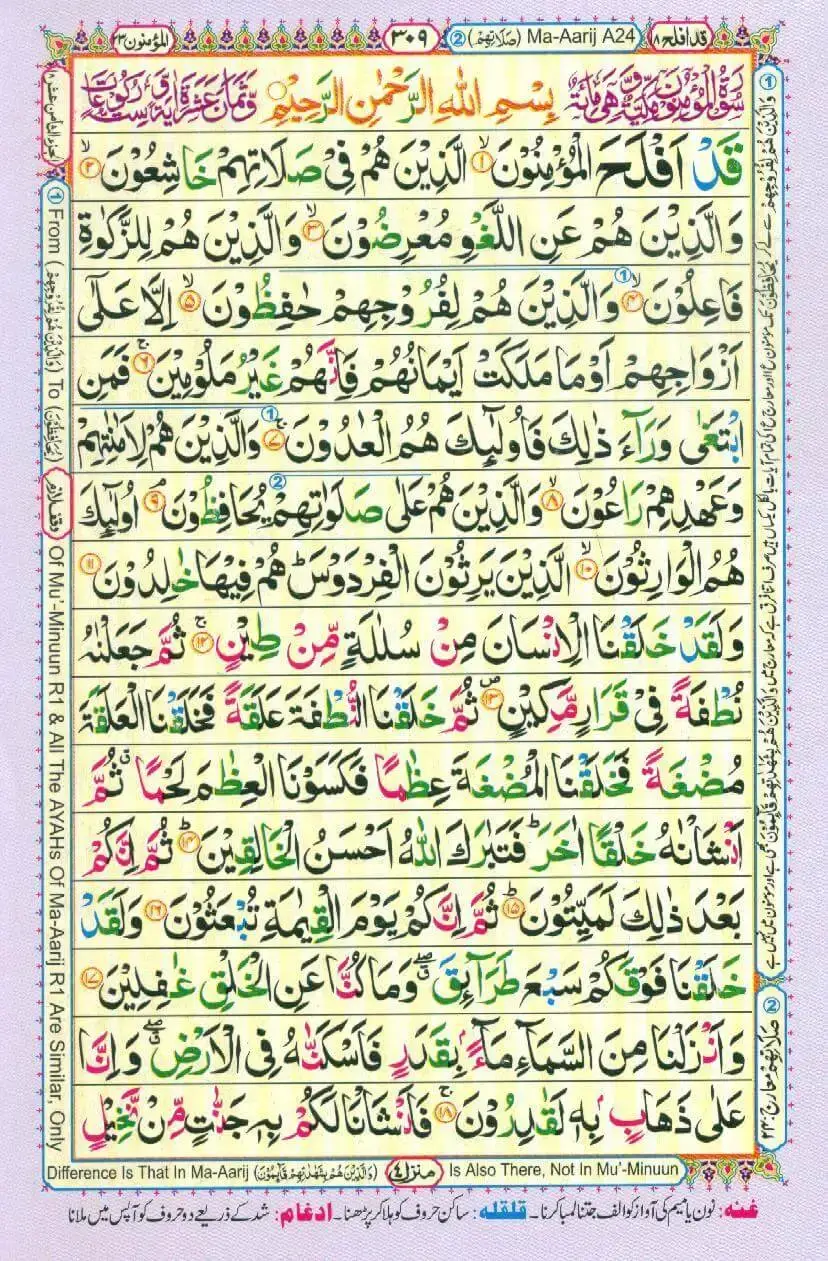 قد افلح ١٨
Ma-Aarij A24 (صَلَاتِهِمْ) ②
٣٠٩
المؤمنون ٢٣
سُوْرَةُ الْمُؤْمِنُوْنَ مَكِّيَّةٌ وَّهِیَ مِائَةٌ
بِسْمِ اللهِ الرَّحْمٰنِ الرَّحِیْمِ
وَّثَمَانَ عَشْرَةَ اٰیَةً وَّسِتُّ رُكُوْعَاتٍ
قَدْ اَفْلَحَ الْمُؤْمِنُوْنَ ۙ﴿۱﴾ الَّذِیْنَ هُمْ فِیْ صَلَاتِهِمْ خَاشِعُوْنَ ۙ﴿۲﴾
وَالَّذِیْنَ هُمْ عَنِ اللَّغْوِ مُعْرِضُوْنَ ۙ﴿۳﴾ وَالَّذِیْنَ هُمْ لِلزَّكٰوةِ
فَاعِلُوْنَ ۙ﴿۴﴾ ① وَالَّذِیْنَ هُمْ لِفُرُوْجِهِمْ حٰفِظُوْنَ ۙ﴿۵﴾ اِلَّا عَلٰۤی
اَزْوَاجِهِمْ اَوْ مَا مَلَكَتْ اَیْمَانُهُمْ فَاِنَّهُمْ غَیْرُ مَلُوْمِیْنَ ۚ﴿۶﴾ فَمَنِ
ابْتَغٰی وَرَآءَ ذٰلِكَ فَاُولٰٓئِكَ هُمُ الْعٰدُوْنَ ۚ﴿۷﴾ ① وَالَّذِیْنَ هُمْ لِاَمٰنٰتِهِمْ
وَعَهْدِهِمْ رَاعُوْنَ ۙ﴿۸﴾ وَالَّذِیْنَ هُمْ عَلٰی صَلَوٰتِهِمْ ② یُحَافِظُوْنَ ۘ﴿۹﴾ اُولٰٓئِكَ
هُمُ الْوَارِثُوْنَ ۙ﴿۱۰﴾ الَّذِیْنَ یَرِثُوْنَ الْفِرْدَوْسَ ؕ هُمْ فِیْهَا خٰلِدُوْنَ ﴿۱۱﴾
وَلَقَدْ خَلَقْنَا الْاِنْسَانَ مِنْ سُلٰلَةٍ مِّنْ طِیْنٍ ۚ﴿۱۲﴾ ثُمَّ جَعَلْنٰهُ
نُطْفَةً فِیْ قَرَارٍ مَّكِیْنٍ ۪﴿۱۳﴾ ثُمَّ خَلَقْنَا النُّطْفَةَ عَلَقَةً فَخَلَقْنَا الْعَلَقَةَ
مُضْغَةً فَخَلَقْنَا الْمُضْغَةَ عِظٰمًا فَكَسَوْنَا الْعِظٰمَ لَحْمًا ۗ ثُمَّ
اَنْشَاْنٰهُ خَلْقًا اٰخَرَ ؕ فَتَبٰرَكَ اللهُ اَحْسَنُ الْخَالِقِیْنَ ؕ﴿۱۴﴾ ثُمَّ اِنَّكُمْ
بَعْدَ ذٰلِكَ لَمَیِّتُوْنَ ؕ﴿۱۵﴾ ثُمَّ اِنَّكُمْ یَوْمَ الْقِیٰمَةِ تُبْعَثُوْنَ ﴿۱۶﴾ وَلَقَدْ
خَلَقْنَا فَوْقَكُمْ سَبْعَ طَرَآئِقَ ۖ وَمَا كُنَّا عَنِ الْخَلْقِ غٰفِلِیْنَ ﴿۱۷﴾
وَاَنْزَلْنَا مِنَ السَّمَآءِ مَآءًۢ بِقَدَرٍ فَاَسْكَنّٰهُ فِی الْاَرْضِ ۖ وَاِنَّا
عَلٰی ذَهَابٍۭ بِهٖ لَقٰدِرُوْنَ ۚ﴿۱۸﴾ فَاَنْشَاْنَا لَكُمْ بِهٖ جَنّٰتٍ مِّنْ نَّخِیْلٍ
① From (وَالَّذِیْنَ هُمْ لِفُرُوْجِهِمْ) To (یُحَافِظُوْنَ) وقف لازم Of Mu'-Minuun R1 & All The AYAHs Of Ma-Aarij R1 Are Similar, Only
Difference Is That In Ma-Aarij (وَالَّذِیْنَ هُمْ بِشَهٰدٰتِهِمْ قَآئِمُوْنَ) منزل ٤ Is Also There, Not In Mu'-Minuun
② صَلَاتِهِمْ معارج: ٢٣
غنه: نون یا میم کی آواز کو الف جتنا لمبا کرنا۔ قلقله: ساکن حروف کو ہلا کر پڑھنا۔ ادغام: شد کے ذریعے دو حروف کو آپس میں ملانا